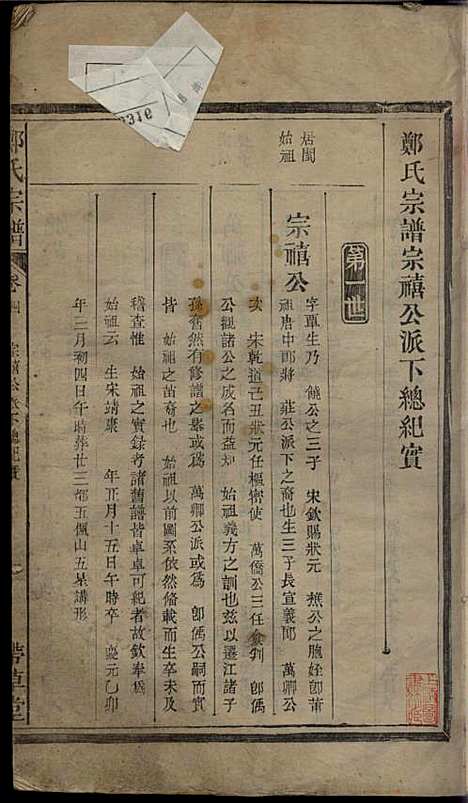 鄭氏宗譜宗禧公派下總紀實
第一世
居閩
始祖
宗禧公
字單生乃 僥公之三子 宋欽賜狀元 樵公之胞姪卽莆
祖唐中郎將 莊公派下之裔也生三子長宣義郎 萬卿公
次 宋乾道己丑狀元任樞密使 萬僑公三任僉判 卽傌
公觀諸公之成名而益知 始祖義方之訓也茲以遷江諸子
孫奮然有修譜之舉或爲 萬卿公派或爲 卽傌公嗣而實
皆 始祖之苗裔也 始祖以前圖系依然僃載而生卒未及
稽查惟 始祖之實錄考諸舊譜皆卓卓可紀者故欽奉爲
始祖云 生宋靖康 年正月十五日午時卒 慶元己卯
年二月初四日午時葬廿三都五佩山五星講形
鄭氏宗譜
卷四
宗禧公派下總紀實
一
帶草堂